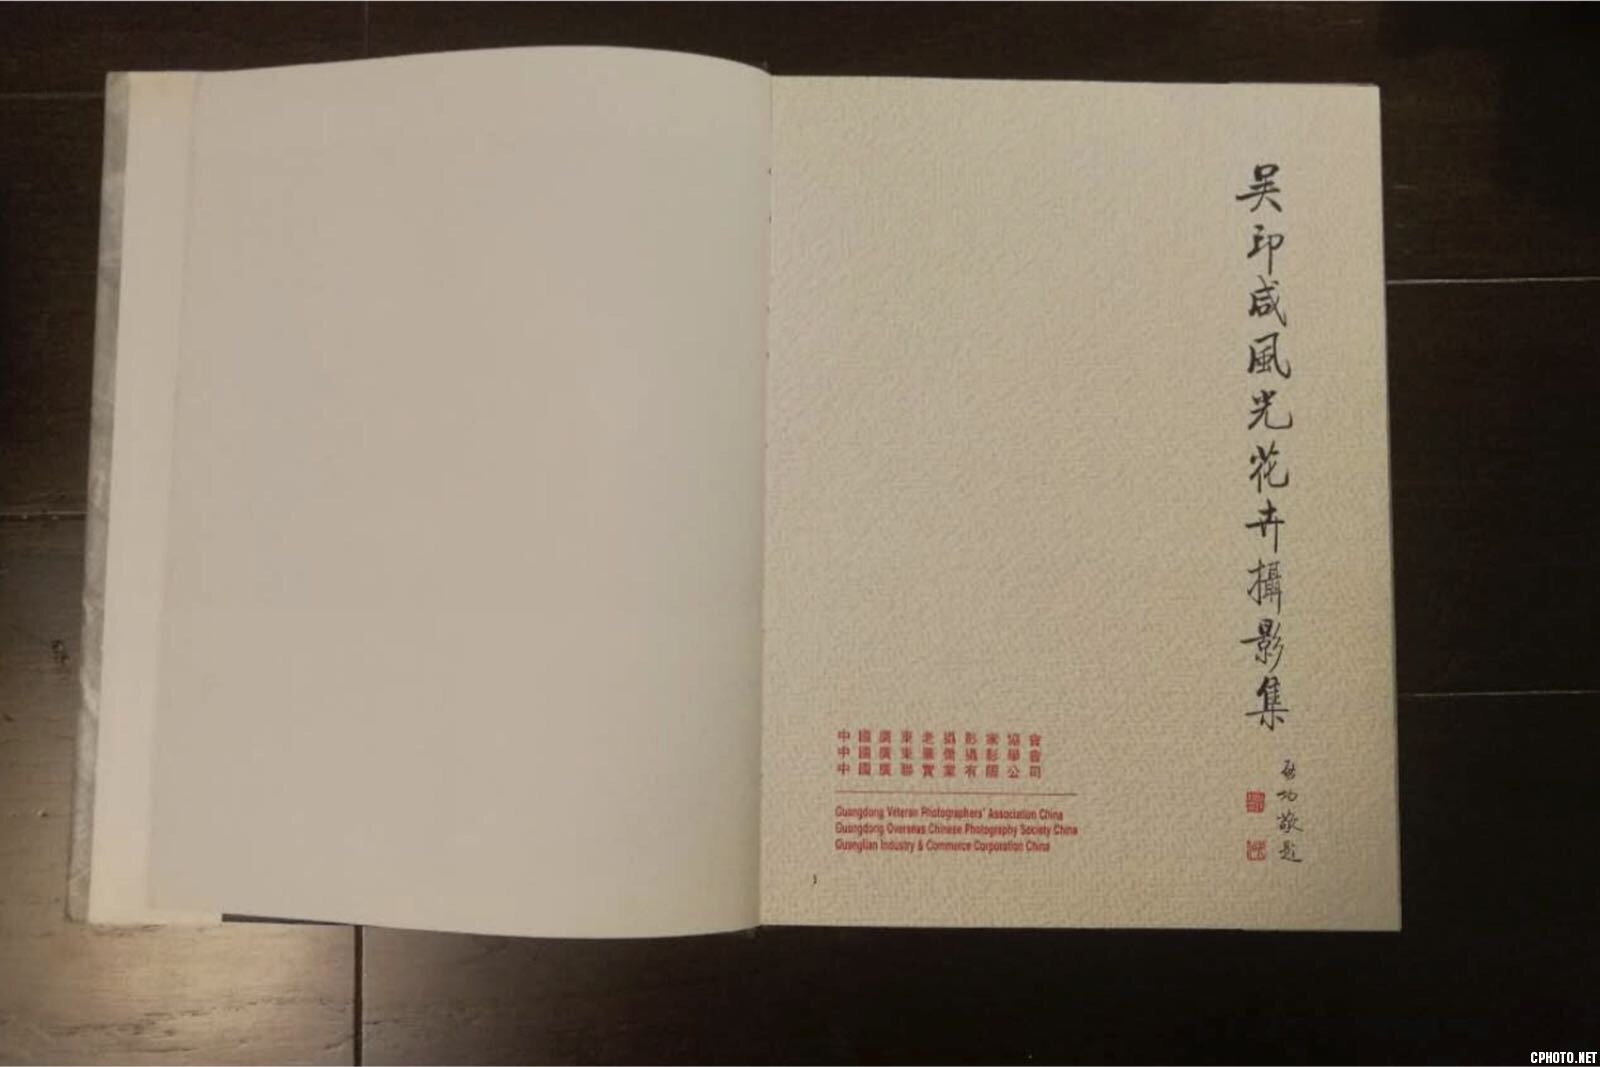 吴印咸風光花卉攝影集
啟功敬題
中國廣東老攝影家協會
中國廣東華僑攝影學會
中國廣聯實業有限公司
Guangdong Veteran Photographers' Association China
Guangdong Overseas Chinese Photography Society China
Guanglian Industry & Commerce Corporation China
CPHOTO.NET